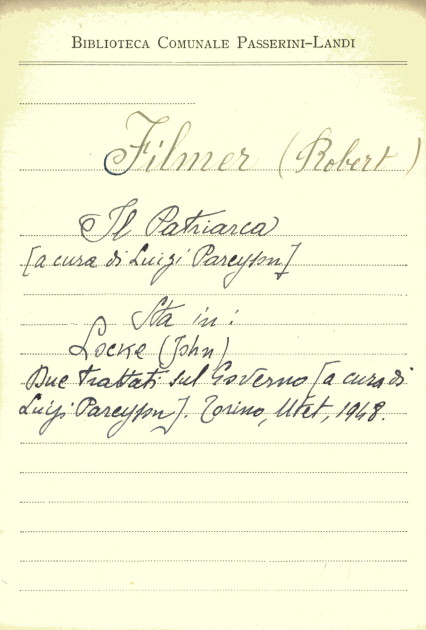 BIBLIOTECA COMUNALE PASSERINI-LANDI
Filmer (Robert)
Il Patriarca
[a cura di Luigi Pareyson]
Sta in:
Locke (John)
Due trattati sul Governo [a cura di
Luigi Pareyson]. Torino, Utet, 1948.